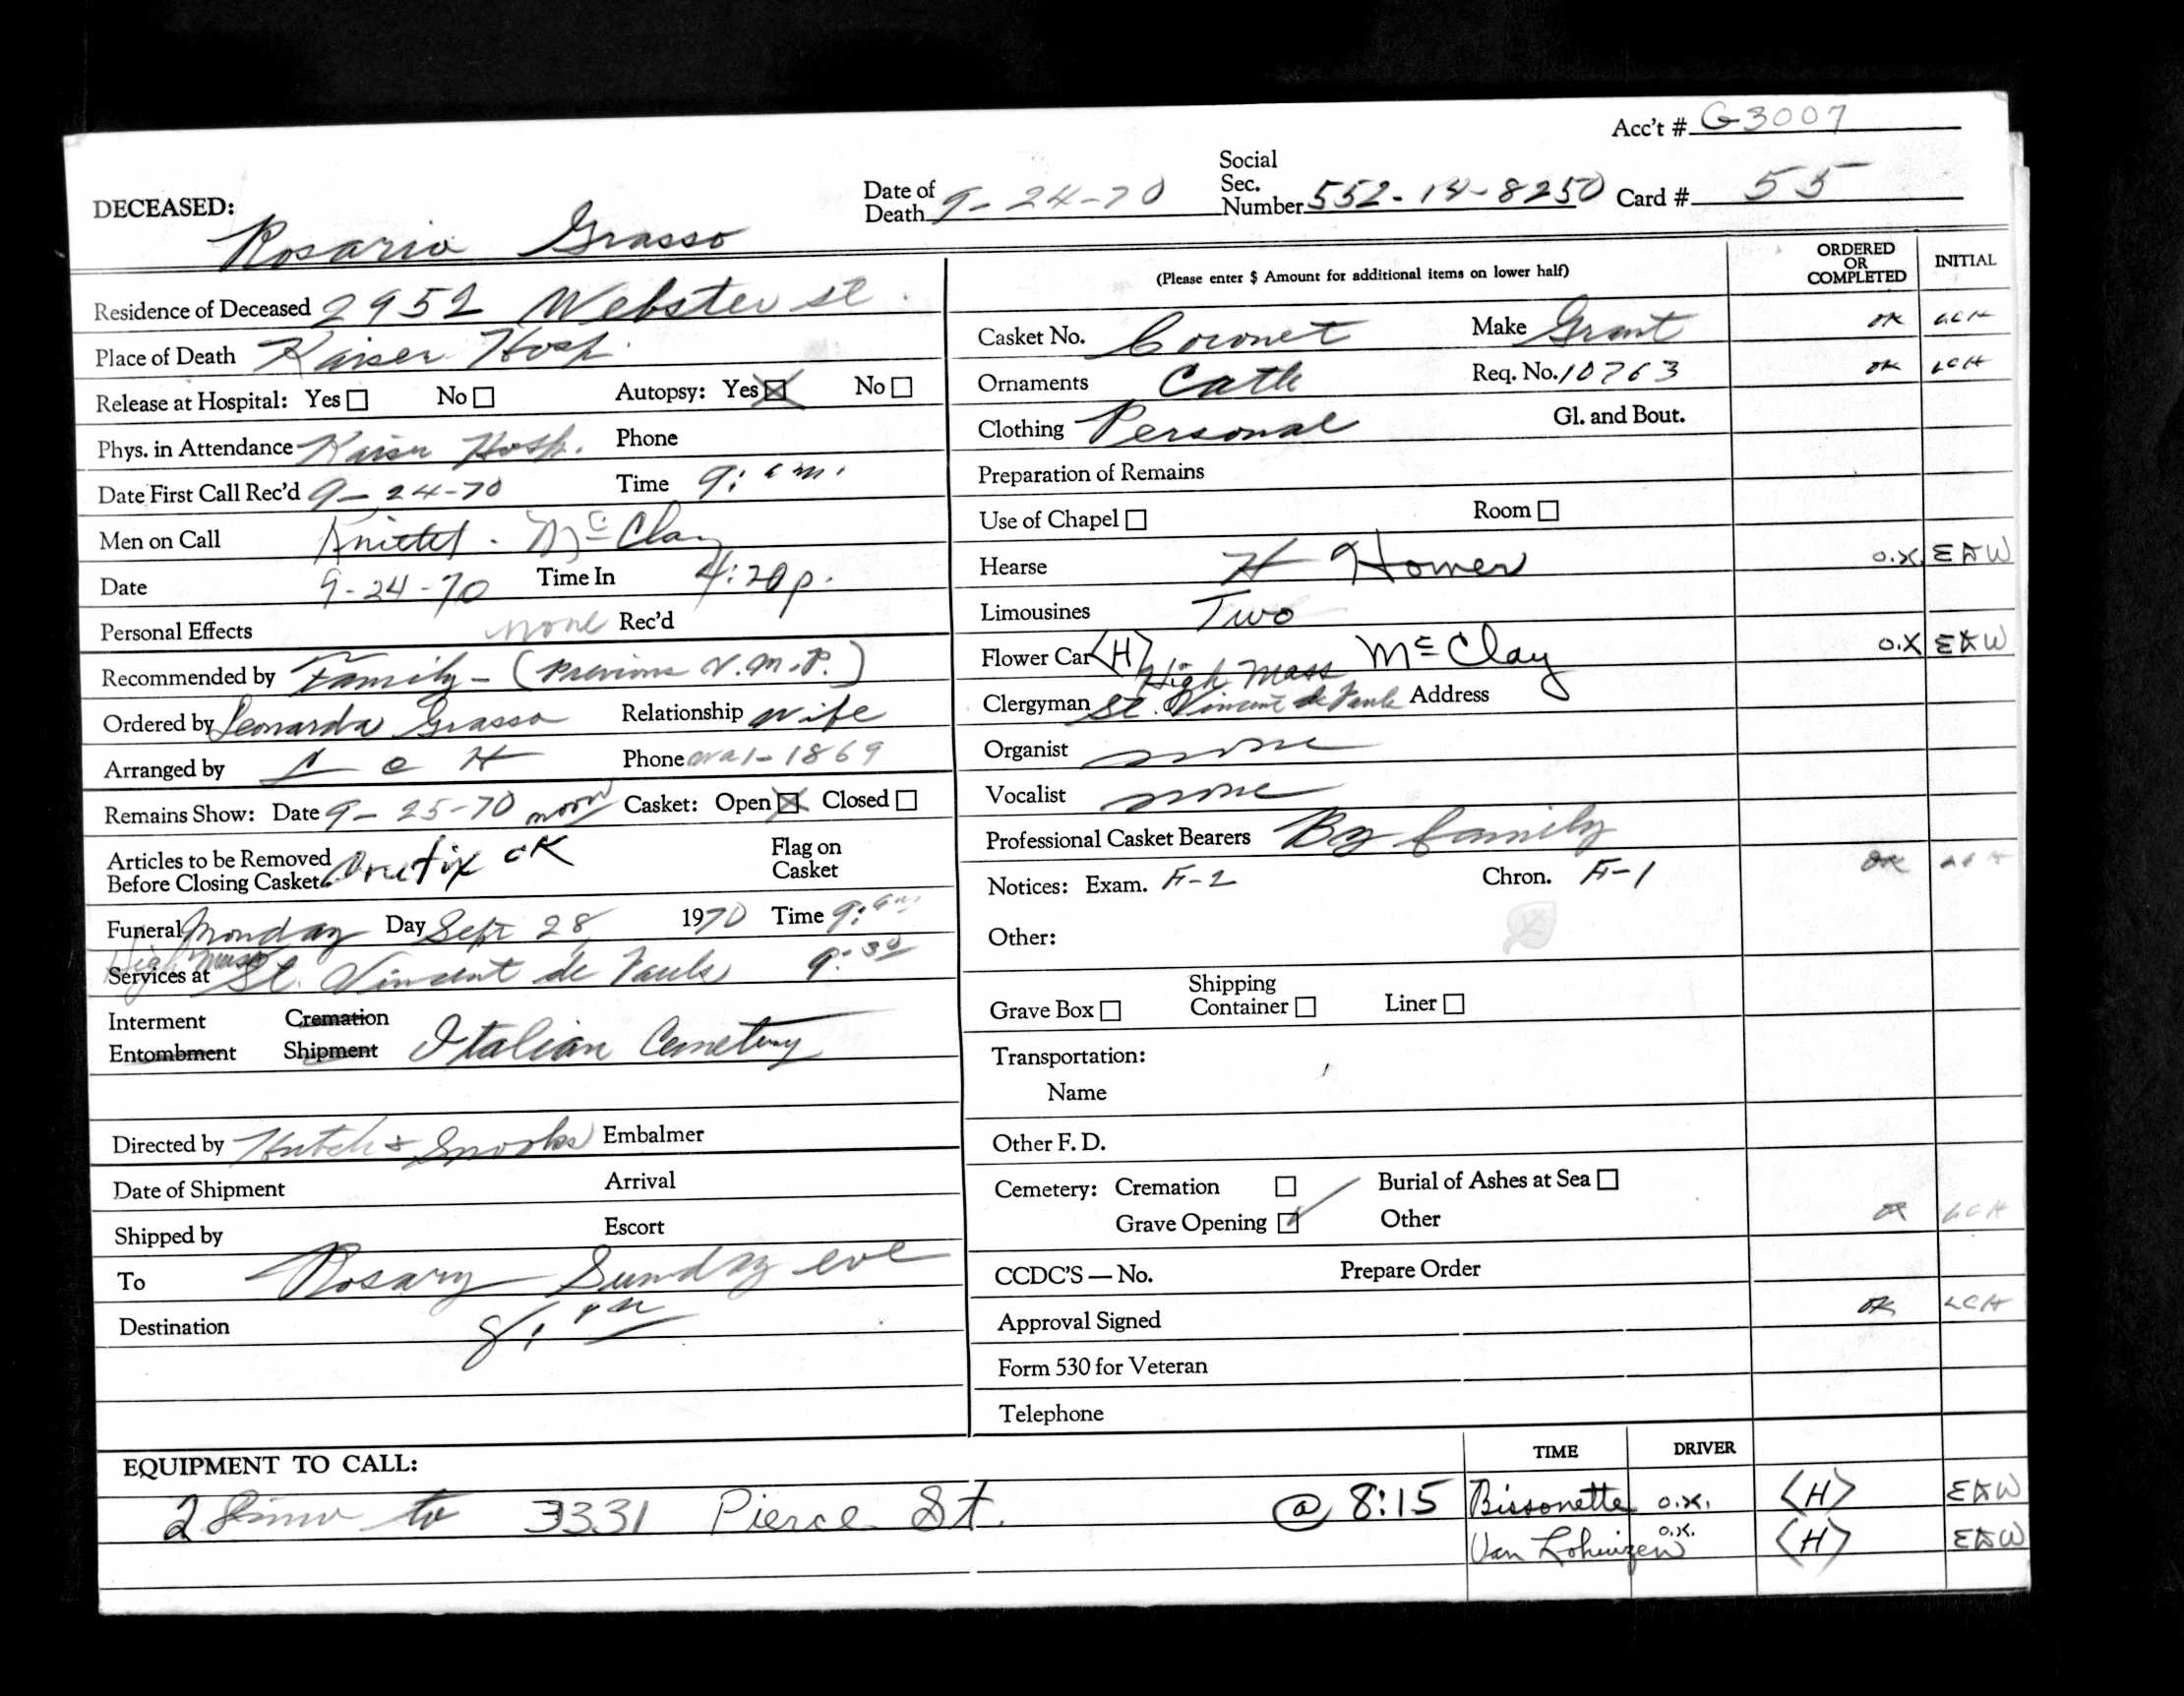 Acc't # G3007
DECEASED: Rosario Grasso
Date of Death 9-24-70 Social Sec. Number 552-14-8250 Card # 55
Residence of Deceased 2952 Webster St.
Place of Death Kaiser Hosp.
Release at Hospital: Yes No Autopsy: Yes No
Phys. in Attendance Kaiser Hosp. Phone
Date First Call Rec'd 9-24-70 Time 9:
Men on Call McClay
Date 9-24-70 Time In 4:20p.
Personal Effects none Rec'd
Recommended by Family - (Previous V.M.P.)
Ordered by Leonarda Grasso Relationship wife
Arranged by L C H Phone 1-1869
Remains Show: Date 9-25-70 noon Casket: Open Closed
Articles to be Removed Before Closing Casket OK Flag on Casket
Funeral Monday Day Sept 28 1970 Time 9:
High Mass
Services at St. Vincent de Pauls 9:30
Interment Cremation
Entombment Shipment Italian Cemetery
Directed by Hutch & Snooks Embalmer
Date of Shipment Arrival
Shipped by Escort
To Rosary Sunday eve
Destination 8:
(Please enter $ Amount for additional items on lower half) ORDERED OR COMPLETED INITIAL
Casket No. Coronet Make Grant OK LCH
Ornaments Cath Req. No. 10763 OK LCH
Clothing Personal Gl. and Bout.
Preparation of Remains
Use of Chapel Room
Hearse H Homer O.K. EAW
Limousines Two
Flower Car <H> McClay O.K EAW
High Mass
Clergyman St. Vincent de Pauls Address
Organist none
Vocalist none
Professional Casket Bearers By family
Notices: Exam. F-2 Chron. F-1 OK LCH
Other:
Grave Box Shipping Container Liner
Transportation:
Name
Other F. D.
Cemetery: Cremation Burial of Ashes at Sea
Grave Opening Other OK LCH
CCDC'S — No. Prepare Order
Approval Signed OK LCH
Form 530 for Veteran
Telephone
EQUIPMENT TO CALL: TIME DRIVER
2 Limo to 3331 Pierce St. @ 8:15 Bissonette O.K. <H> EAW
Van O.K. <H> EAW